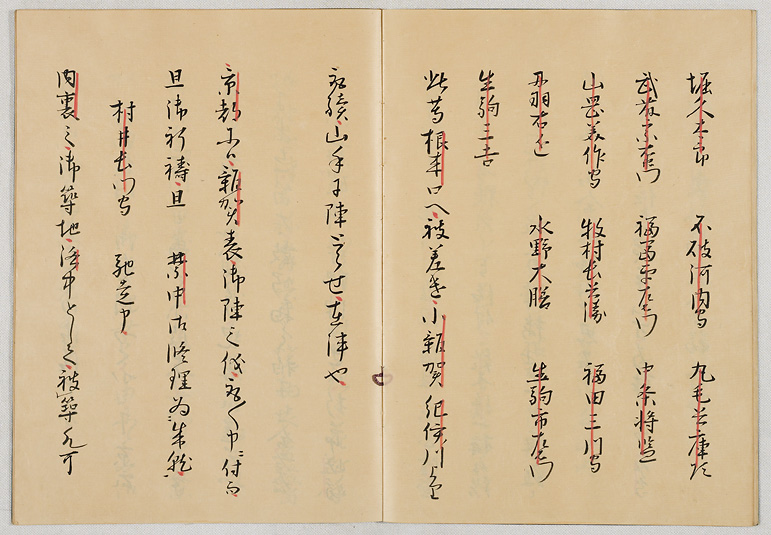 堀久太郎 不破河内守 丸毛兵庫頭
武藤宗右衛門 福富平左衛門 中条将監
山岡美作守 牧村長兵衛 福田三川守
丹羽右近 水野大膳 生駒市左衛門
生駒三吉
此等根来口へ被差遣小雑賀紀伊川
続山手に陣とらせ在陣也
京都にハ雑賀表御陣之儀各〻申付而
且御祈祷且 禁中御修理為
村井長門守 馳走申
内裏之御築地洛中として被築尤可